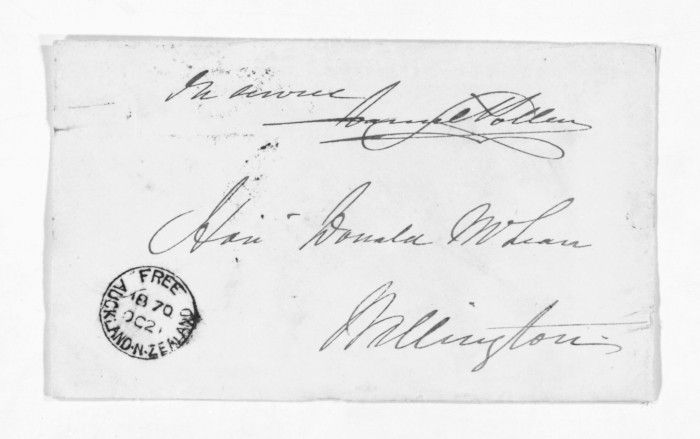 In service
Daniel Pollen
Hon Donald McLean
Wellington
FREE
AUCKLAND·N·ZEALAND
70
OC 21